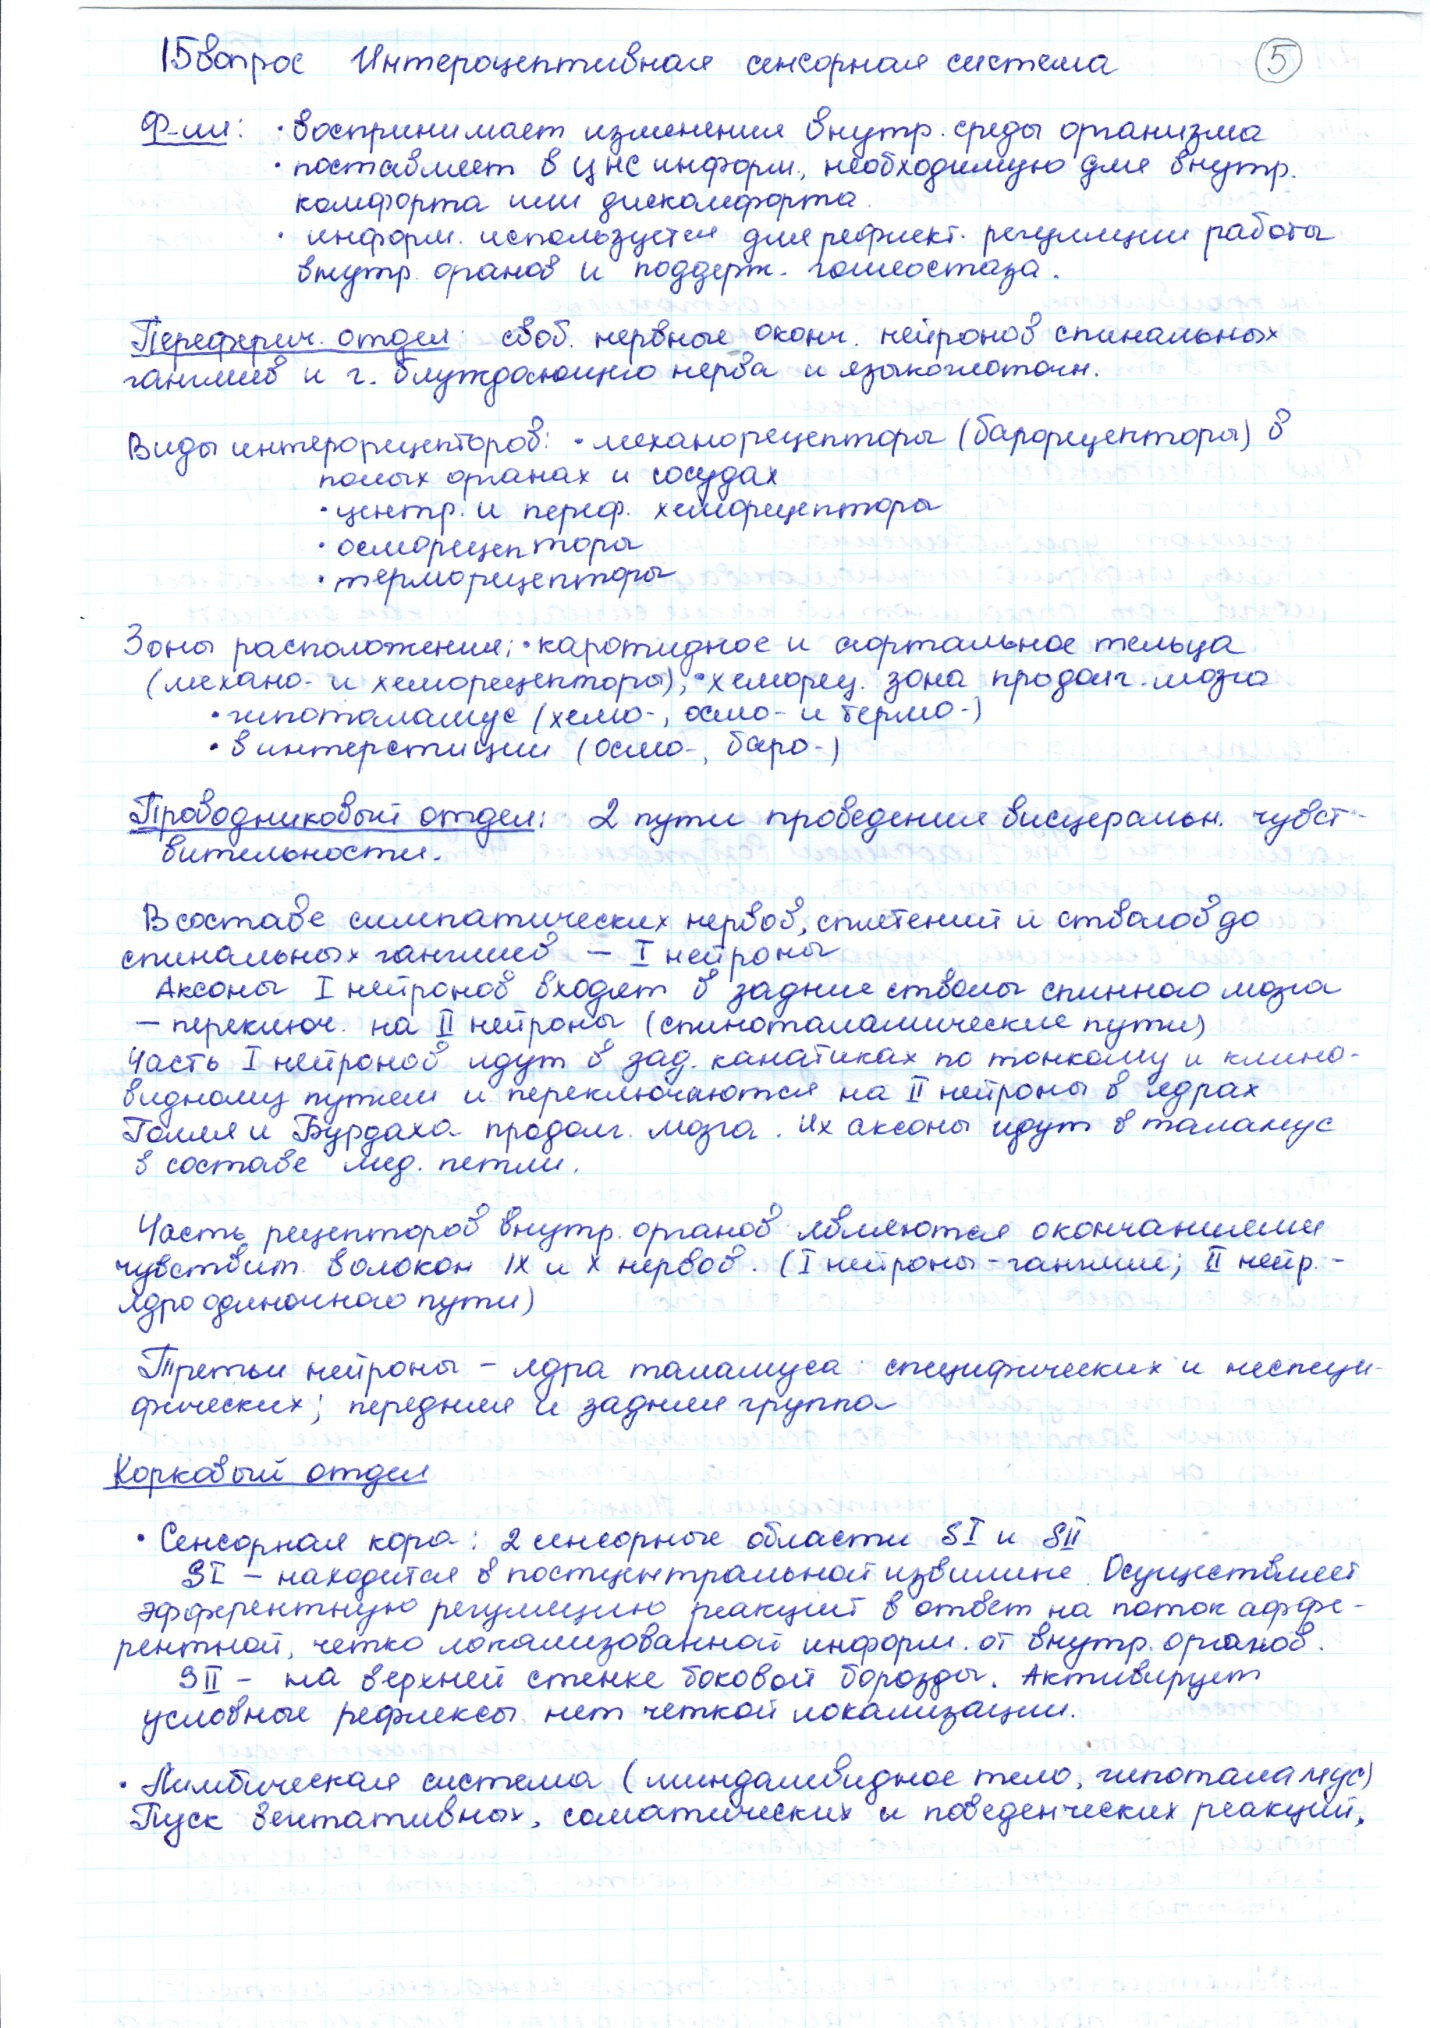 15 вопрос Интероцептивная сенсорная система 5
Ф-ии: • воспринимает изменения внутр. среды организма
• поставляет в ЦНС информ., необходимую для внутр.
комфорта или дискомфорта.
• информ. используется для рефлект. регуляции работы
внутр. органов и поддерж. гомеостаза.
Переферич. отдел: своб. нервные оконч. нейронов спинальных
ганглиев и г. блуждающего нерва и языкоглоточн.
Виды интерорецепторов: • механорецепторы (барорецепторы) в
полых органах и сосудах
• центр. и периф. хеморецепторы
• осморецепторы
• терморецепторы
Зоны расположения: • каротидное и аортальное тельца
(механо- и хеморецепторы); • хеморец. зона продолг. мозга
• гипоталамус (хемо-, осмо- и термо-)
• в интерстиции (осмо-, баро-)
Проводниковый отдел: 2 пути проведения висцеральн. чувст-
вительности.
В составе симпатических нервов, сплетений и стволов до
спинальных ганглиев – I нейроны
Аксоны I нейронов входят в задние стволы спинного мозга
– переключ. на II нейроны (спиноталамические пути)
Часть I нейронов идут в зад. канатиках по тонкому и клино-
видному путем и переключаются на II нейроны в ядрах
Голля и Бурдаха продолг. мозга. Их аксоны идут в таламус
в составе мед. петли.
Часть рецепторов внутр. органов являются окончаниями
чувствит. волокон IX и X нервов. (I нейроны - ганглии; II нейр. -
ядро одиночного пути)
Третьи нейроны – ядра таламуса: специфических и неспеци-
фических; передняя и задняя группа
Корковый отдел
• Сенсорная кора: 2 сенсорные области SI и SII
SI – находится в постцентральной извилине. Осуществляет
эфферентную регуляцию реакций в ответ на поток аффе-
рентной, четко локализованной информ. от внутр. органов.
SII – на верхней стенке боковой борозды. Активирует
условные рефлексы, нет четкой локализации.
• Лимбическая система (миндалевидное тело, гипоталамус)
Пуск вегетативных, соматических и поведенческих реакций.